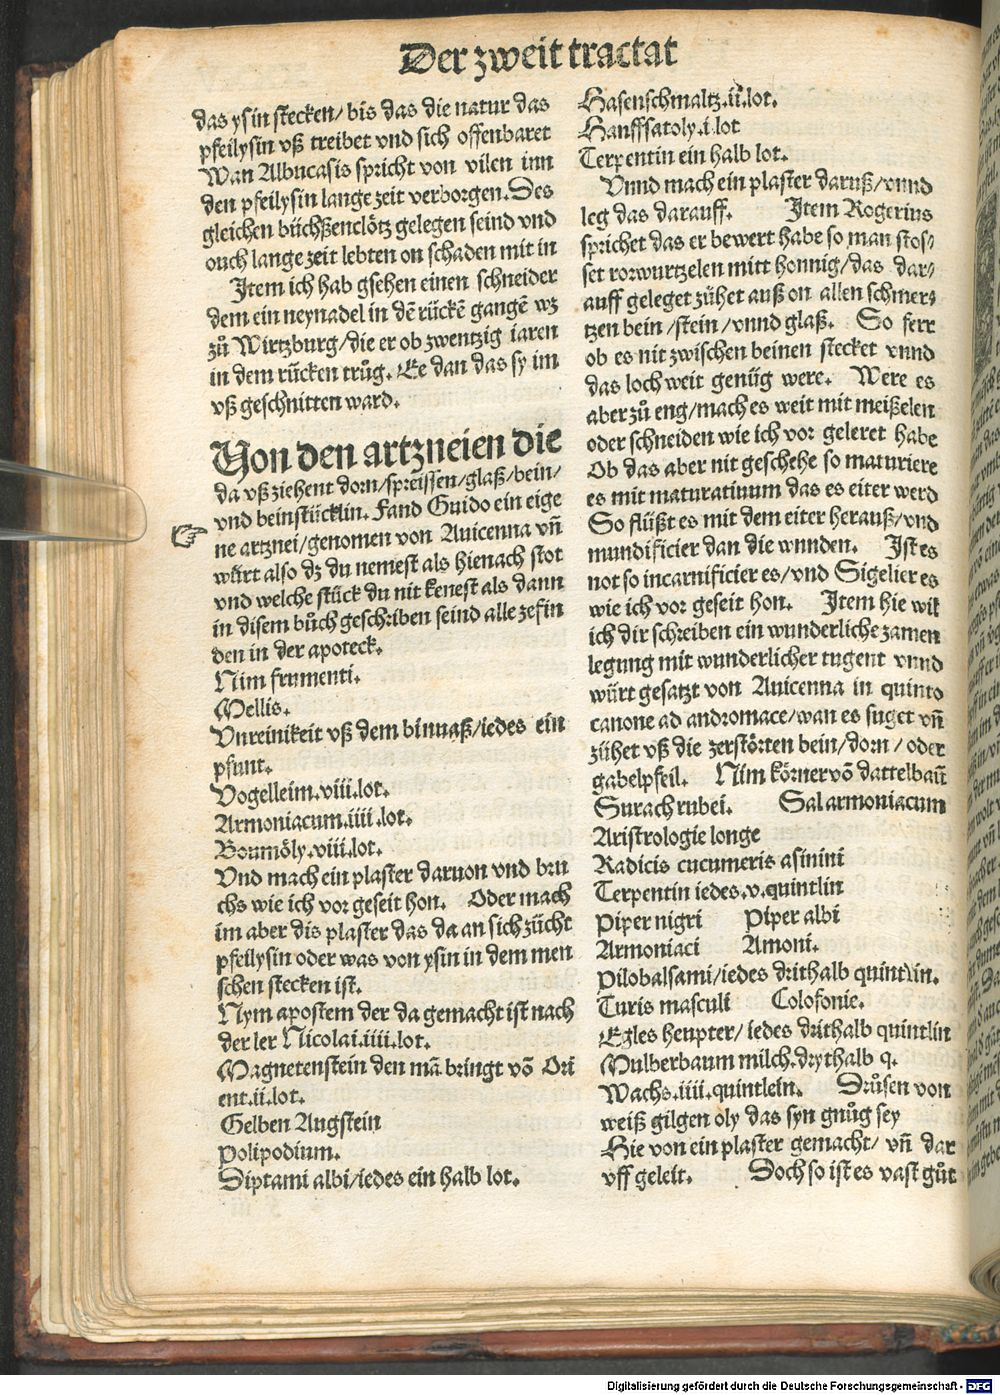 Der zweit tractat
das ysin stecken/ bis das die natur das
pfeilysin vß treibet vnd sich offenbaret
Wan Albucasis spricht von vilen inn
den pfeilysin lange zeit verborgen. Des
gleichen büchßenclötz gelegen seind vnd
ouch lange zeit lebten on schaden mit in
Item ich hab gsehen einen schneider
dem ein neynadel in dẽ rückẽ gangẽ wz
zů Wirtzburg/die er ob zwentzig iaren
in dem rücken trůg. Ee dan das sy im
vß geschnitten ward.
Von den artzneien die
da vß ziehent dorn/spreissen/glaß/bein/
vnd beinstücklin. Fand Guido ein eige
ne artznei/genomen von Auicenna vñ
würt also dz du nemest als hienach stot
vnd welche stück du nit kenest als dann
in disem bůch geschriben seind alle zefin
den in der apoteck.
Nim frumenti.
Mellis.
Vnreinikeit vß dem binnaß/iedes ein
pfunt.
Vogelleim.viii.lot.
Armoniacum.iiii.lot.
Boumöly.viii.lot.
Vnd mach ein plaster daruon vnd bru
chs wie ich vor geseit hon. Oder mach
im aber dis plaster das da an sich zücht
pfeilysin oder was von ysin in dem men
schen stecken ist.
Nym apostem der da gemacht ist nach
der ler Nicolai.iiii.lot.
Magnetenstein den mã bringt võ Ori
ent.ii.lot.
Gelben Augstein
Polipodium.
Diptami albi/iedes ein halb lot.
Hasenschmaltz.ii.lot.
Hanffsatoly.i.lot
Terpentin ein halb lot.
Vnnd mach ein plaster daruß/vnnd
leg das darauff. Item Rogerius
sprichet das er bewert habe so man stos⸗
set rorwurtzelen mitt honnig/das dar⸗
auff geleget zühet auß on allen schmer⸗
tzen bein /stein /vnnd glaß. So ferr
ob es nit zwischen beinen stecket vnnd
das loch weit genüg were. Were es
aber zů eng/mach es weit mit meißelen
oder schneiden wie ich vor geleret habe
Ob das aber nit geschehe so maturiere
es mit maturatiuum das es eiter werd
So flüßt es mit dem eiter herauß/vnd
mundificier dan die wnnden. Ist es
not so incarnificier es/vnd Sigelier es
wie ich vor geseit hon. Item hie wil
ich dir schreiben ein wunderliche zamen
legung mit wunderlicher tugent vnnd
würt gesatzt von Auicenna in quinto
canone ad andromace/wan es suget vñ
zühet vß die zerstörten bein/dorn / oder
gabelpfeil. Nim körner võ dattelbaũ
Surach rubei. Sal armoniacum
Aristrologie longe
Radicis cucumeris asinini
Terpentin iedes.v.quintlin
Piper nigri Piper albi
Armoniaci Amoni.
Pilobalsami/iedes drithalb quintlin.
Turis masculi Colofonie.
Egles heupter/ iedes drithalb quintlin
Mulberbaum milch.drythalb q.
Wachs.iiii.quintlein. Drůsen von
weiß gilgen oly das syn gnůg sey
Hie von ein plaster gemacht/ vñ dar
vff geleit. Doch so ist es vast gůt
Digitalisierung gefördert durch die Deutsche Forschungsgemeinschaft - DFG